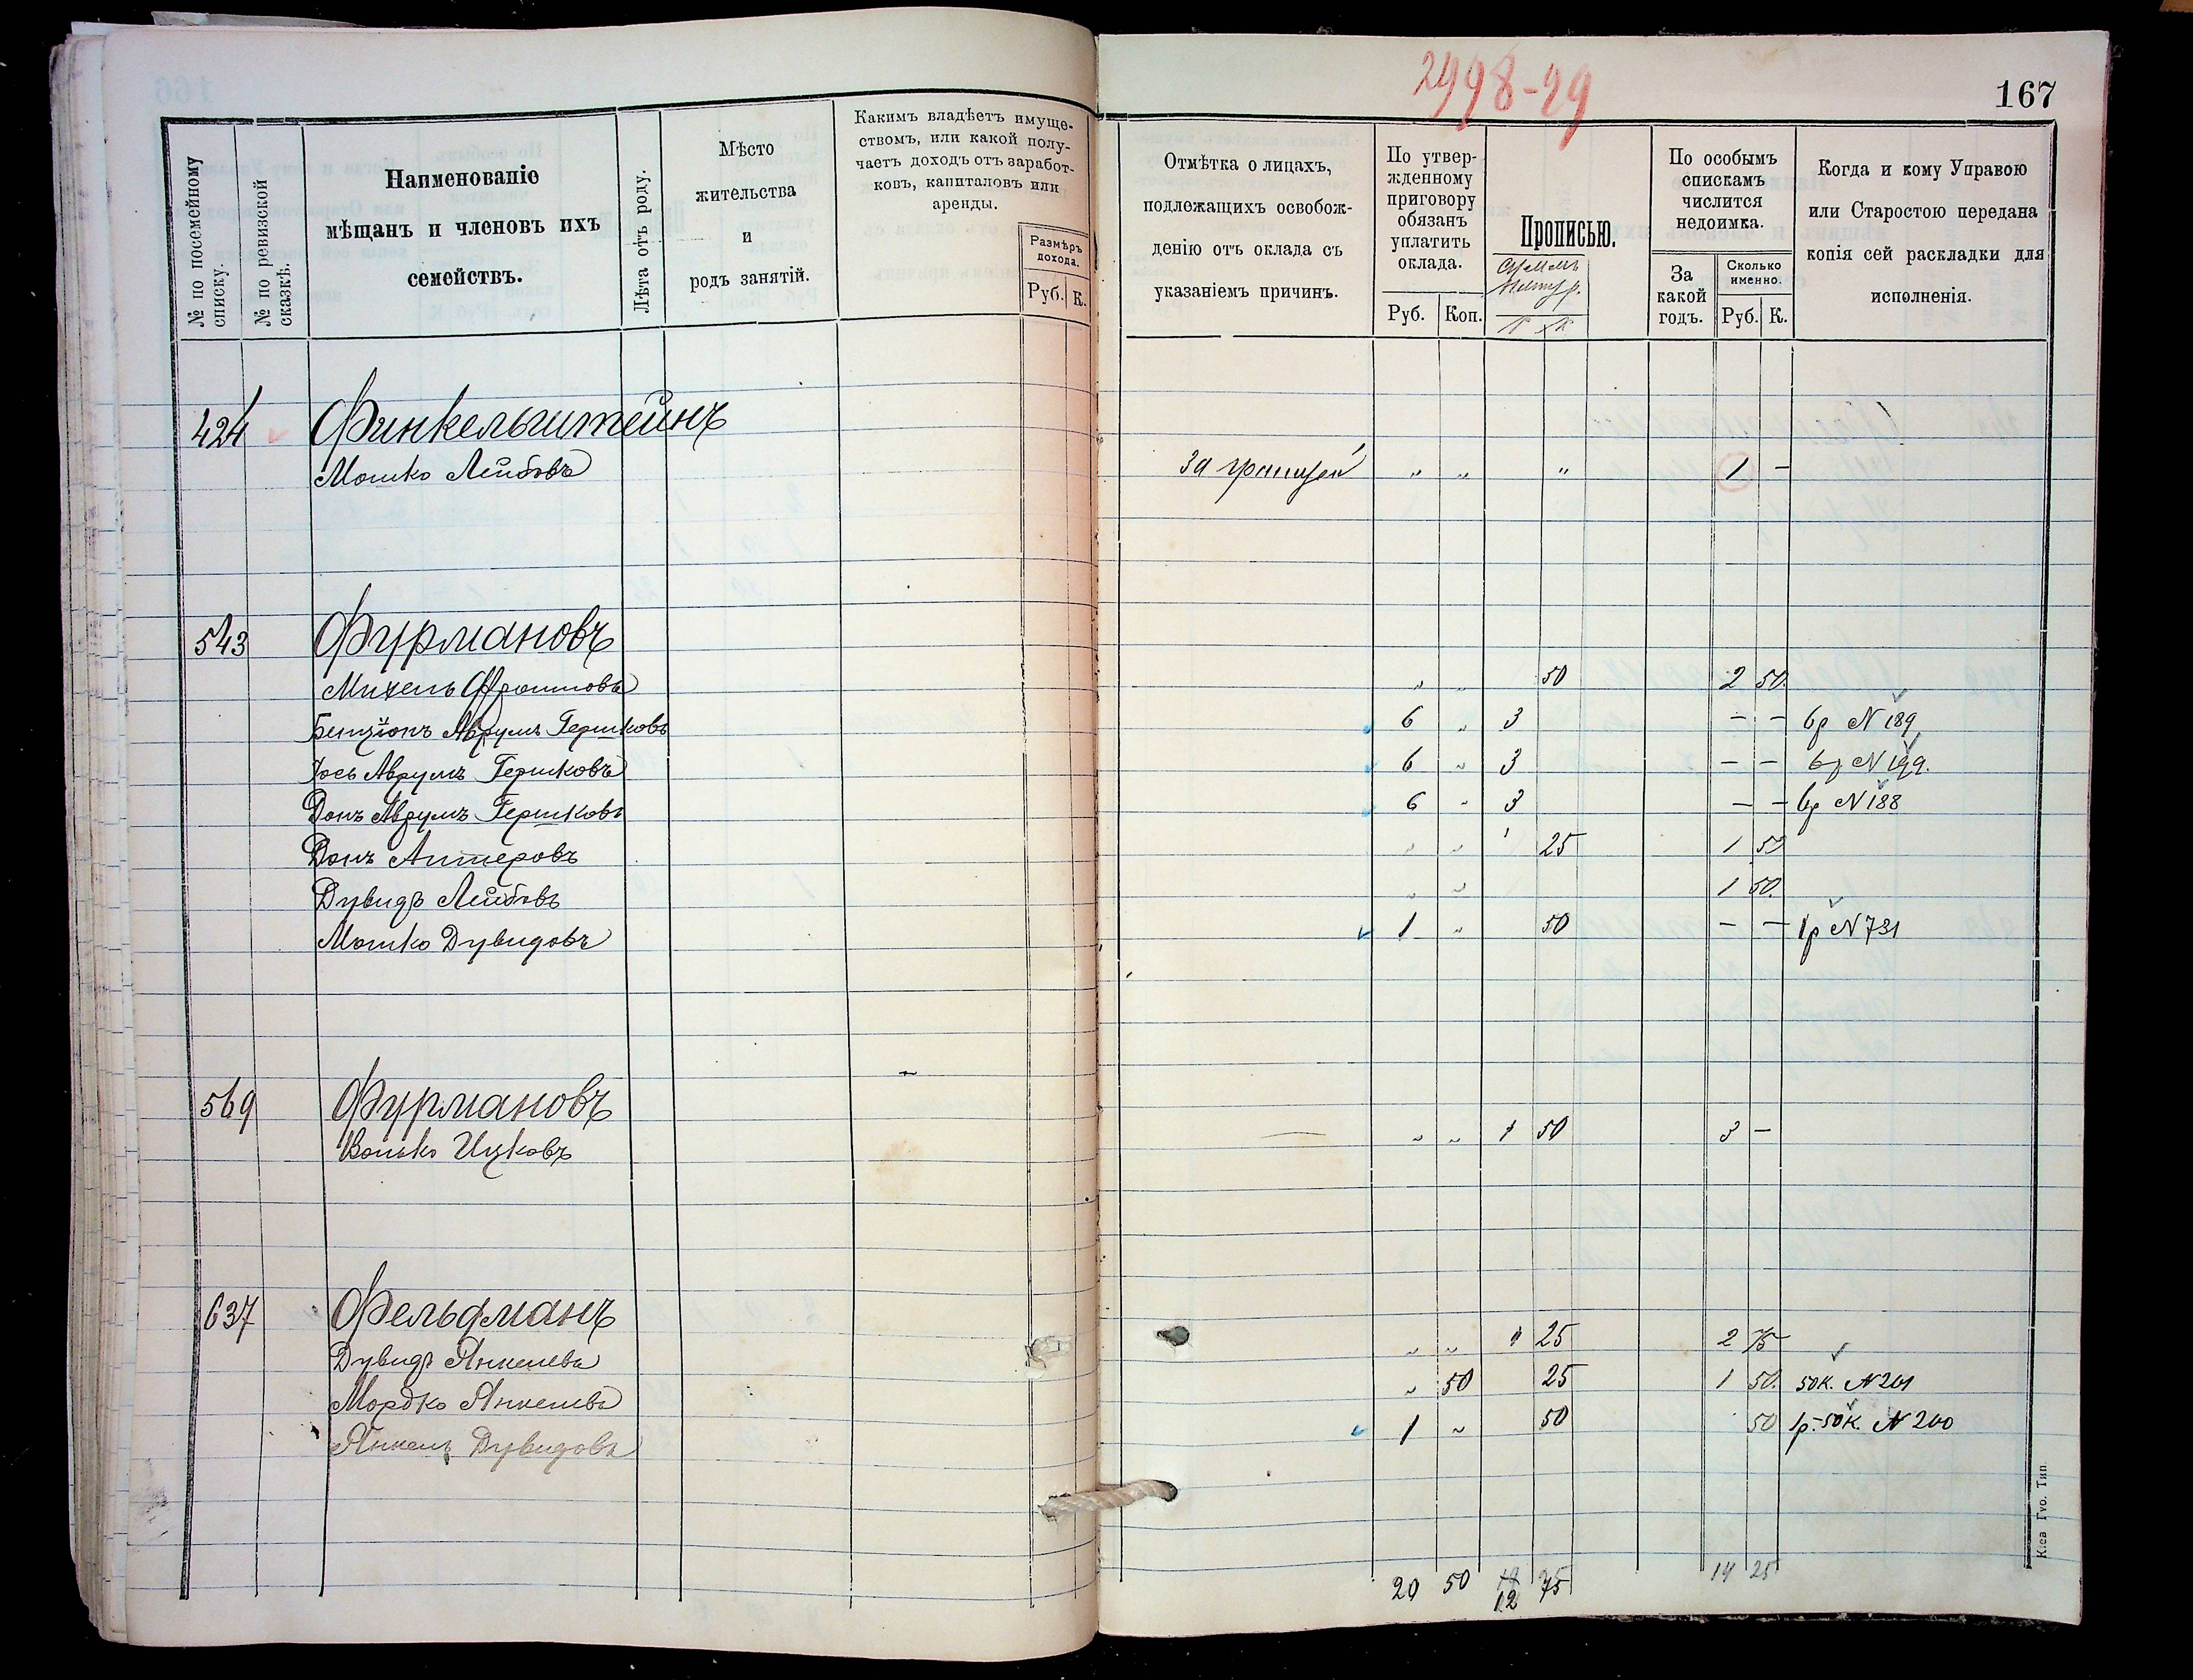 2998-29
167
№ по посемейному списку.
№ по ревизской сказкѣ.
Наименованіе
мѣщанъ и членовъ ихъ
семействъ.
Лѣта отъ роду.
Мѣсто
жительства
и
родъ занятій.
Какимъ владѣетъ имуще-
ствомъ, или какой полу-
чаетъ доходъ отъ заработ-
ковъ, капиталовъ или
аренды.
Размѣръ
дохода.
Руб. К.
Отмѣтка о лицахъ,
подлежащихъ освобож-
денію отъ оклада съ
указаніемъ причинъ.
По утвер-
жденному
приговору
обязанъ
уплатить
оклада.
Руб. Коп.
Прописью.
Р К
По особымъ
спискамъ
числится
недоимка.
За
какой
годъ.
Сколько
именно.
Руб. К.
Когда и кому Управою
или Старостою передана
копія сей раскладки для
исполненія.
424 Финкельштейнъ
Мошко Лейбовъ за границей " " " 1 -
543 Фурмановъ
Михель Фроимовъ " " 50 2 50.
Бенціонъ Аврумъ Гершковъ 6 " 3 - - 6р N 189
Іось Аврумъ Гершковъ 6 " 3 - - 6р N 199.
Донъ Аврумъ Гершковъ 6 " 3 - - 6р N 188
Донъ Антеровъ " " 25 1 50
Дувидъ Лейбовъ " " 1 50.
Мошко Дувидовъ 1 " 50 - - 1р N 731
569 Фурмановъ
Волько Ицковъ " " 1 50 3 -
637 Фельдманъ
Дувидъ Янкелевъ " " 25 2 75
Мордко Янкелевъ " 50 25 1 50. 50к. N 201
Янкель Дувидовъ 1 " 50 50 1р.-50к. N 200
20 50 12 75 14 25
Кіев. Губ. Тип.